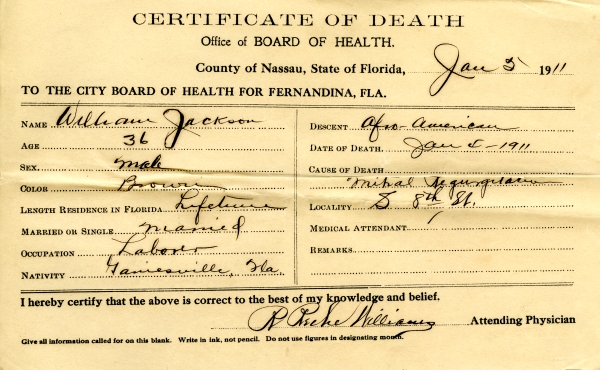 CERTIFICATE OF DEATH
Office of BOARD OF HEALTH.
County of Nassau, State of Florida, Jan 5 1911
TO THE CITY BOARD OF HEALTH FOR FERNANDINA, FLA.
NAME William Jackson
AGE 36
SEX Male
COLOR Brown
LENGTH RESIDENCE IN FLORIDA Lifetime
MARRIED OR SINGLE Married
OCCUPATION Laborer
NATIVITY Gainesville, Fla
DESCENT Afro-American
DATE OF DEATH Jan 5-1911
CAUSE OF DEATH
Mitral Regurgitation
LOCALITY S 8th St.
MEDICAL ATTENDANT
REMARKS
I hereby certify that the above is correct to the best of my knowledge and belief.
Williams Attending Physician
Give all information called for on this blank. Write in ink, not pencil. Do not use figures in designating month.